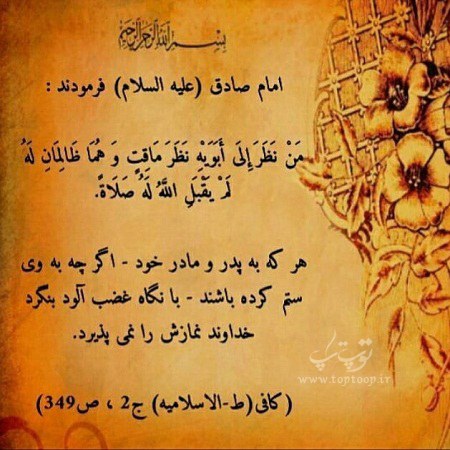 بسم الله الرحمن الرحیم
امام صادق (علیه السلام) فرمودند :
مَنْ نَظَرَ إِلَى أَبَوَيْهِ نَظَرَ مَاقِتٍ وَ هُمَا ظَالِمَانِ لَهُ
لَمْ يَقْبَلِ اللَّهُ لَهُ صَلَاةً.
هر که به پدر و مادر خود - اگر چه به وی
ستم کرده باشند - با نگاه غضب آلود بنگرد
خداوند نمازش را نمی پذیرد.
توپ تاپ
www.toptoop.ir
(کافی(ط-الاسلامیه) ج2 ، ص349)